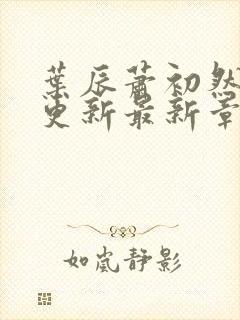 葉辰蕭初然
更新最新章
如嵐靜影